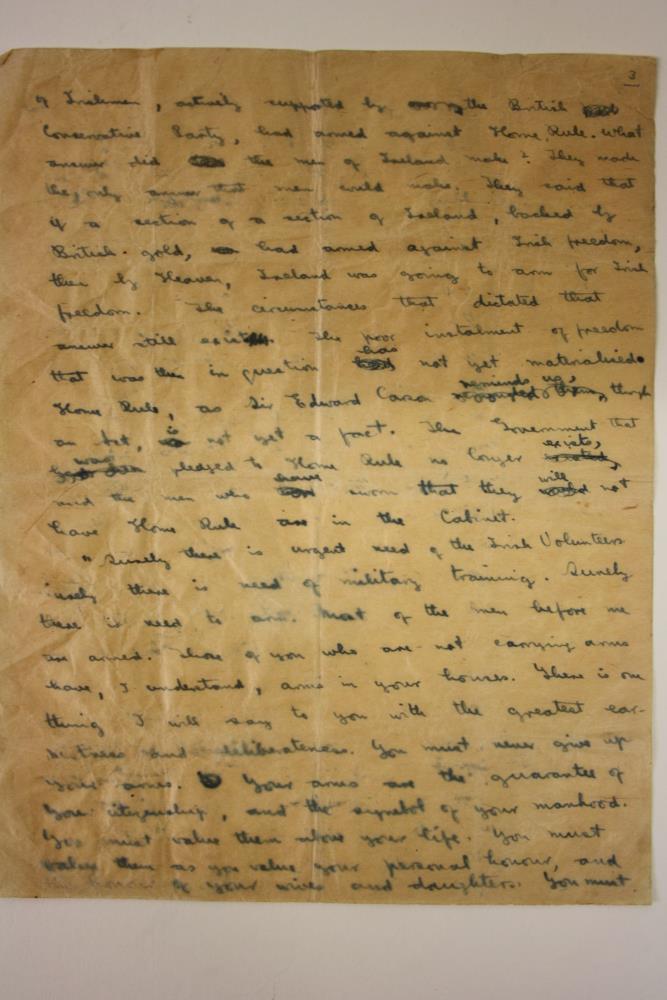 3
of Irishmen, actively supported by the British
Conservative Party, had armed against Home Rule. What
answer did the men of Ireland make? They made
the only answer that men could make. They said that
if a section of a section of Ireland, backed by
British gold, had armed against Irish freedom,
then by Heaven, Ireland was going to arm for Irish
freedom. The circumstances that dictated that
answer still exist. The poor instalment of freedom
that was then in question has not yet materialised.
Home Rule, as Sir Edward Carson reminds us, though
an Act, is not yet a fact. The Government that
was pledged to Home Rule no longer exists,
and the men who have sworn that they will not
have Home Rule are in the Cabinet.
"Surely there is urgent need of the Irish Volunteers.
Surely there is need of military training. Surely
there is need to arm. Most of the men before me
are armed. Those of you who are not carrying arms
have, I understand, arms in your houses. There is one
thing I will say to you with the greatest ear-
nestness and deliberateness. You must never give up
your arms. Your arms are the guarantee of
your citizenship, and the symbol of your manhood.
You must value them above your life. You must
value them as you value your personal honour, and
the honour of your wives and daughters. You must